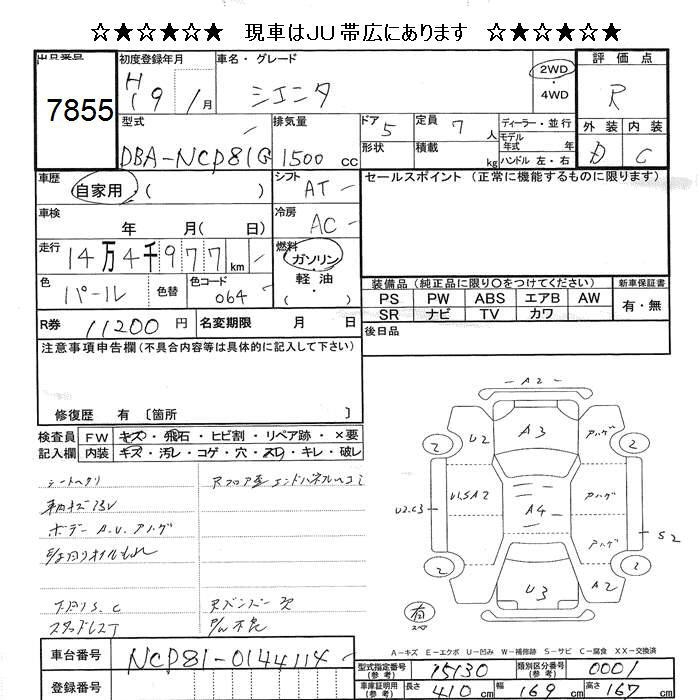 ☆★☆★☆★ 現車はJU帯広にあります ☆★☆★☆★
出品番号
7855
初度登録年月
H19 / 1月
車名・グレード
シエンタ
2WD
・
4WD
評価点
R
外装 内装
D C
型式
DBA-NCP81G
排気量
1500 cc
ドア 5
形状
定員 7 人
積載 kg
ディーラー・並行
モデル年式 年式
ハンドル 左・右
車歴
自家用・( )
シフト AT
車検
年 月( 日)
冷房 AC
走行
14万4千977 km
燃料
ガソリン・
軽油・
( )
色
パール 色替
色コード 064
R券 11200 円 名変期限 月 日
セールスポイント (正常に機能するものに限ります)
装備品 (純正品に限り○をつけてください) 新車保証書
PS PW ABS エアB AW 有・無
SR ナビ TV カワ
後日品
注意事項申告欄(不具合内容等は具体的に記入して下さい)
修復歴 有 〔箇所 〕
検査員 FW キズ・飛石・ヒビ割・リペア跡・×要
記入欄 内装 キズ・汚レ・コゲ・穴・スレ・キレ・破レ
シートヘタリ
ボデー A.U.アハゲ
下廻りS.C
スタッドレスT
Rフロア歪 エンドパネルヘコミ
A2
U2 A3 アハゲ
2 2
U2.C3 U1.SA2 A4 アハゲ S2
アハゲ
2 2
U3 A2
有
スペア
A-キズ E-エクボ U-凹み W-補修跡 S-サビ C-腐食 XX-交換済
車台番号 NCP81-0144114
登録番号
型式指定番号(参考) 15130 類別区分番号(参考) 0001
車庫証明用(参考) 長さ 410 cm 幅 169 cm 高さ 167 cm